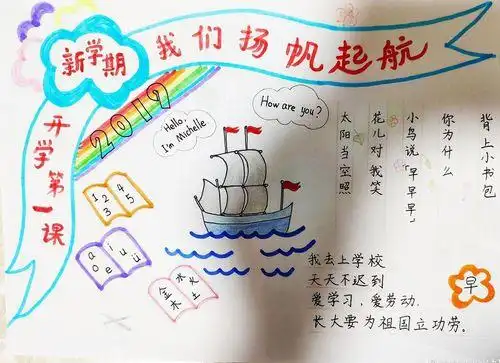 新学期
我们扬帆起航
开学第一课
2019
Hello,
I'm Michelle
How are you?
太阳当空照
花儿对我笑
小鸟说"早早早"
你为什么
背上小书包
我去上学校
天天不迟到
爱学习,爱劳动.
长大要为祖国立功劳。
早
1 2 4
3 5
a i u
o e ü
金 水 火
木 土